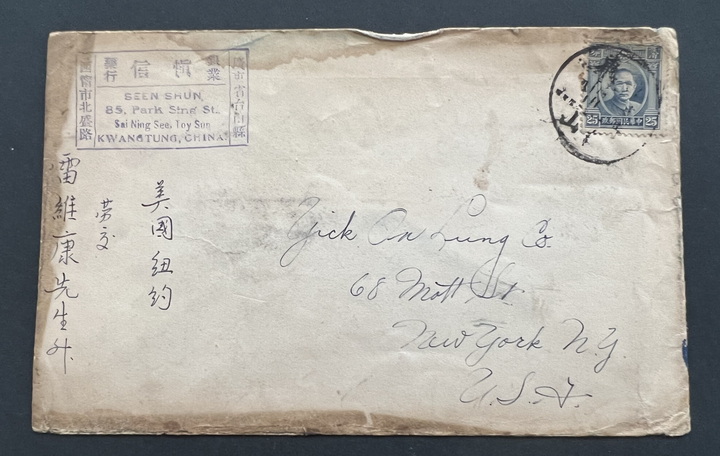 廣東省台山縣
信
藥行
西寧市北盛路
SEEN SHUN,
85, Park Sing St.,
Sai Ning See, Toy Sun
KWANGTUNG, CHINA
25 政郵國民華中 25
Yick On Lung Co.
68 Mott St.
New York N.Y.
U.S.A.
美國紐約
勞交
雷維康先生升